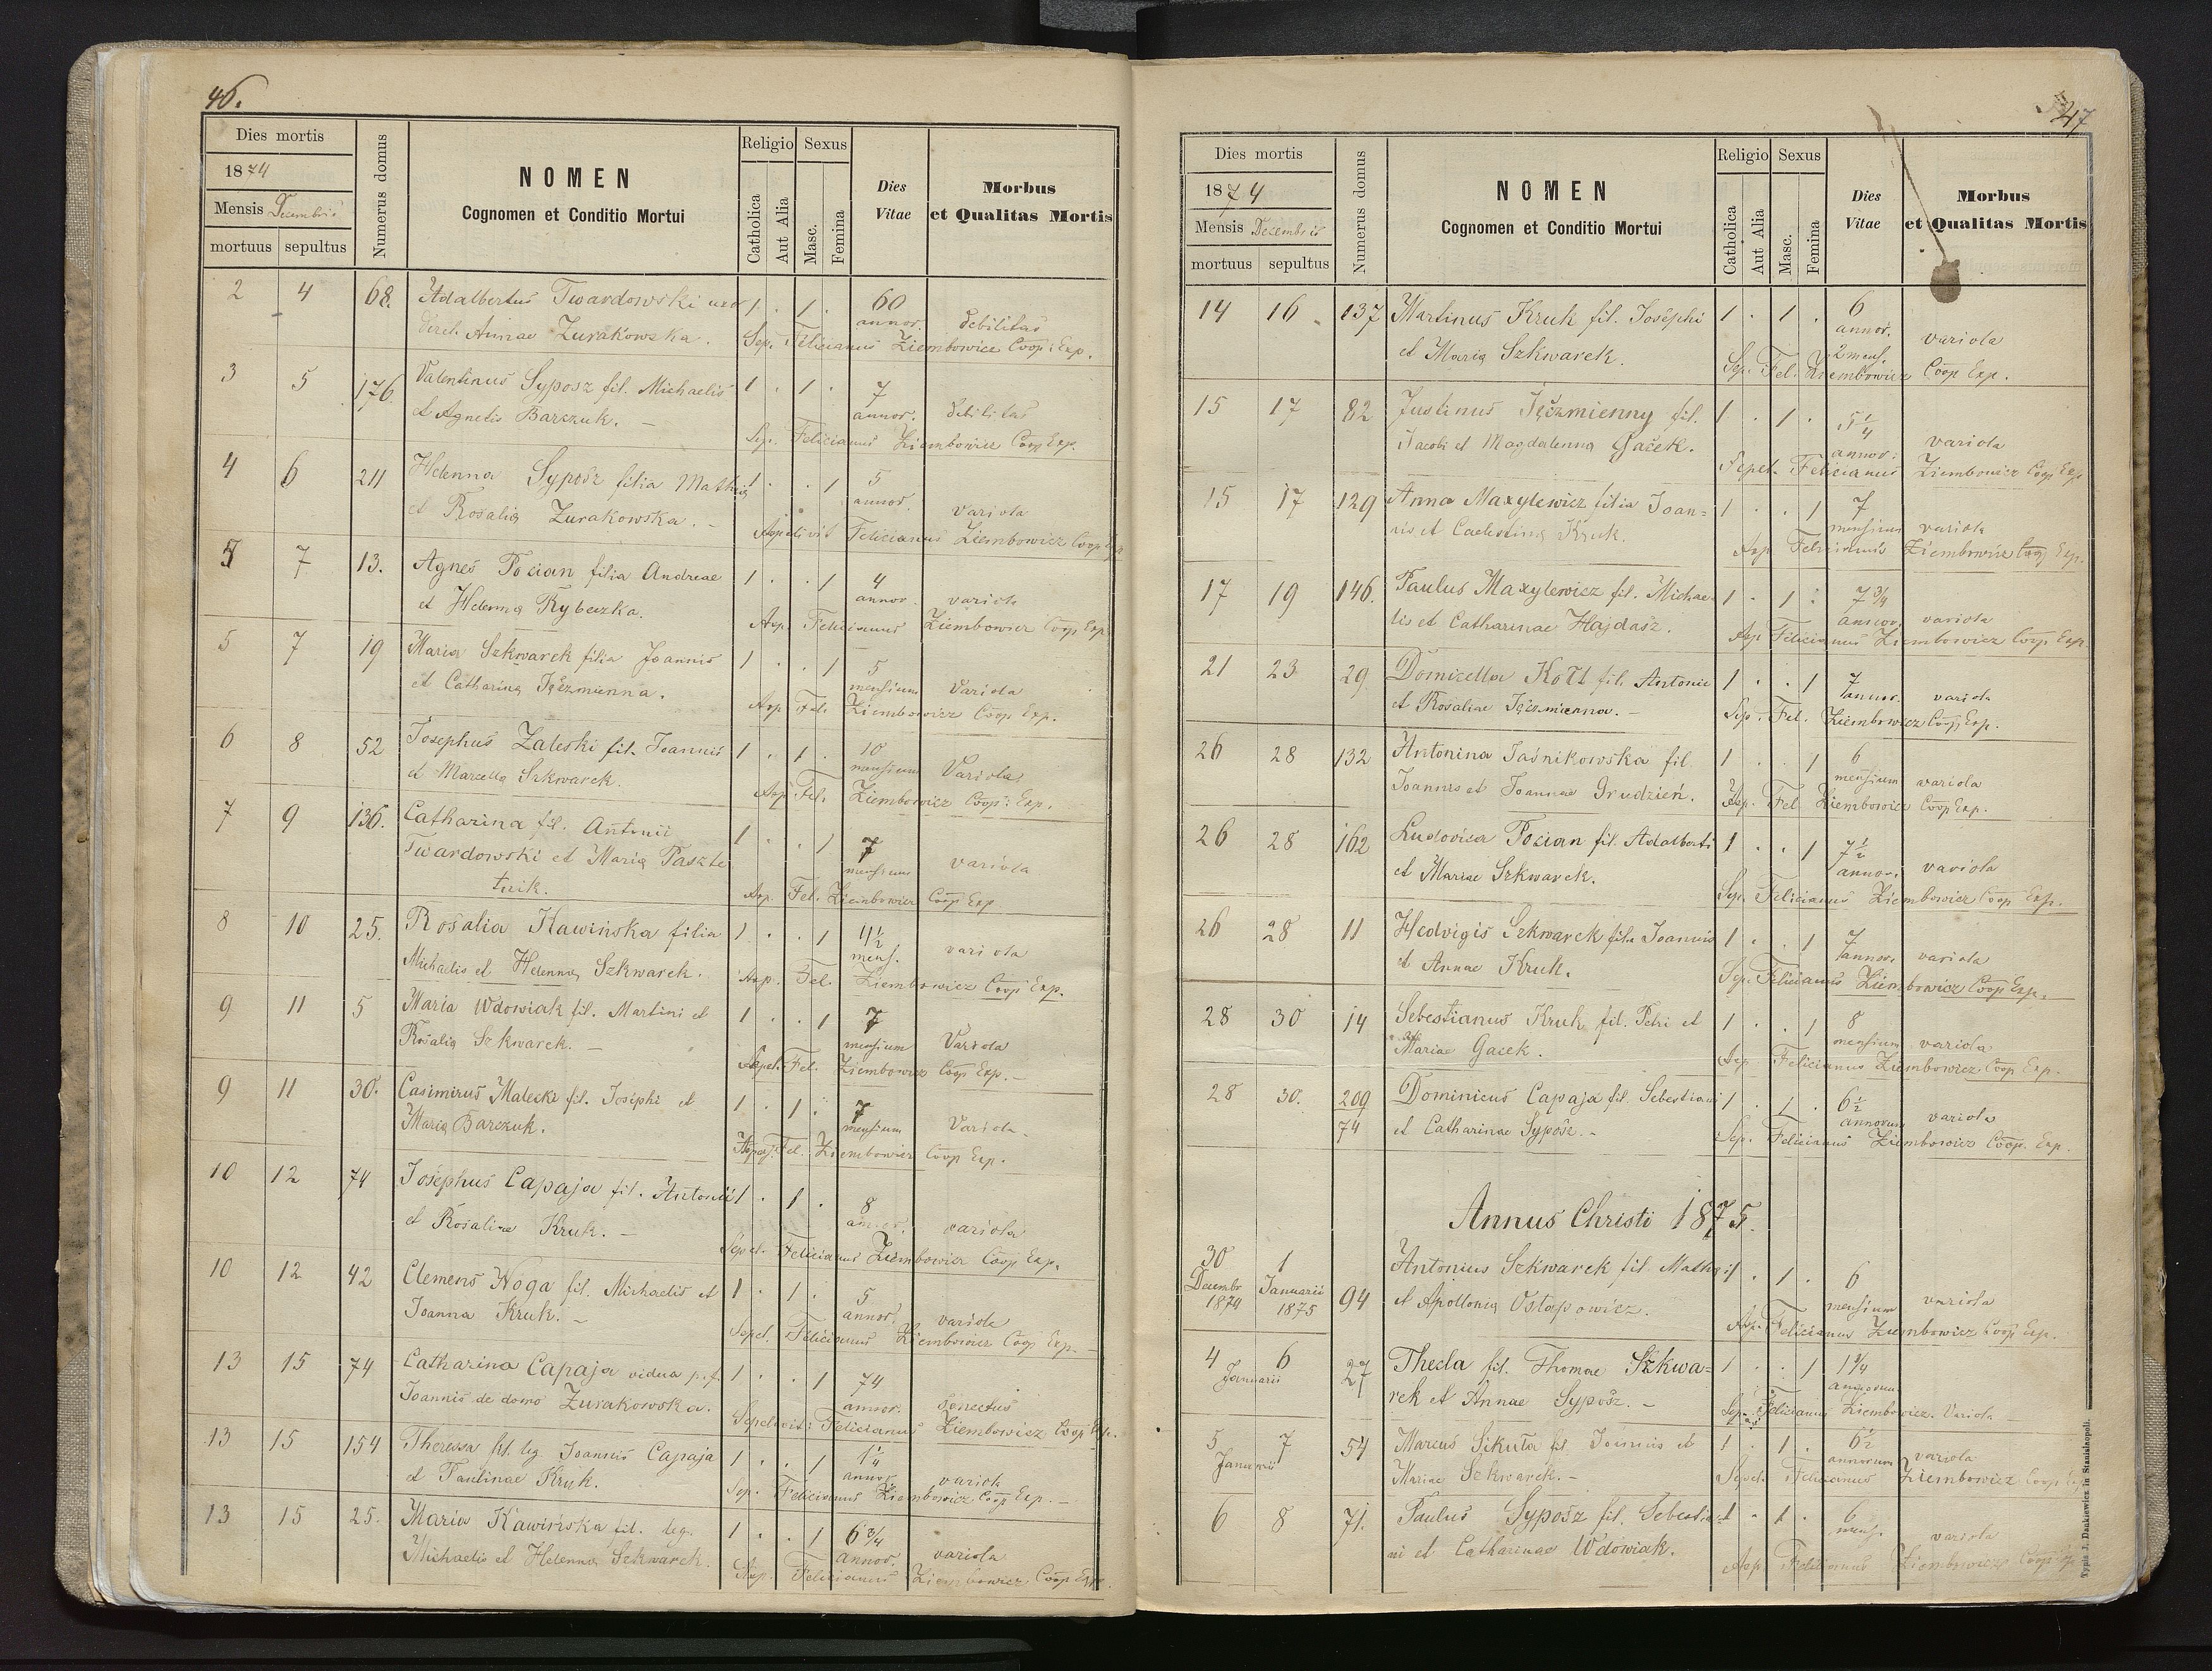 46.
Dies mortis
1874
Mensis Decembris
mortuus sepultus
Numerus domus
NOMEN
Cognomen et Conditio Mortui
Religio Sexus
Catholica
Aut Alia
Masc.
Femina
Dies
Vitae
Morbus
et Qualitas Mortis
2 4 68. Adalbertus Twardowski 1 . 1 . 60
annor. debilitas
Annae Zurakowska.
Sep. Felicianus Ziembowicz Coop: Exp.
3 5 176. Valentinus Syposz fil. Michaelis 1 . 1 . 7
annor. debilitas
et Agnetis Barszuk. —
Sep. Felicianus Ziembowicz Coop Exp.
4 6 211 Helenna Syposz filia Mathią 1 . . 1 5
annor. variola
et Rosalią Zurakowska. -
Felicianus Ziembowicz Coop Exp
5 7 13. Agnes Pocian filia Andreae 1 . . 1 4
annor. variola
et Helenną Rybeczka.
Asp. Felicianus Ziembowicz Coop Exp
5 7 19 Maria Szkwarek filia Joannis 1 . . 1 5
mensium Variola
et Catharina Jęczmienna.
Asp. Fel. Ziembowicz Coop Exp.
6 8 52 Josephus Zaleski fil. Joannis 1 . 1 . 10
mensium Variola
et Marcellą Szkwarek.
Asp. Fel. Ziembowicz Coop: Exp.
7 9 136. Catharina fil. Antonii 1 . . 1 7
mensium variola
Twardowski et Marią Paszte
tnik.
Asp. Fel. Ziembowicz Coop Exp
8 10 25. Rosalia Kawińska filia 1 . . 1 4½
mens. variola
Michaelis et Helenną Szkwarek.
Asp. Fel. Ziembowicz Coop Exp.
9 11 5 Maria Wdowiak fil. Martini et 1 . . 1 7
mensium Variola
Rosalią Szkwarek. —
Sepel. Fel. Ziembowicz Coop Exp. —
9 11 30. Casimirus Malecki fil. Josephi et 1 . 1 . 7
mensium Variola.
Marią Barczuk.
Fel. Ziembowicz Coop Exp.
10 12 74 Josephus Capaja fil. Antonii 1 . 1 . 8
annor. variola
et Rosaliae Kruk. —
Sepel. Felicianus Ziembowicz Coop Exp.
10 12 42 Clemens Noga fil. Michaelis et 1 . 1 . 5
annor. variola
Joanna Kruk. —
Sepel. Felicianus Ziembowicz Coop Exp.
13 15 74 Catharina Capaja vidua p. f. 1 . . 1 74
annor. senectus
Joannis de domo Zurakowska.
Sepelivit: Felicianus Ziembowicz Coop Exp.
13 15 154 Theressa fil. leg. Joannis Capaja 1 . . 1 1¼
annor. variola
et Paulinae Kruk.
Sep. Felicianus Ziembowicz Coop Exp. —
13 15 25. Maria Kawińska fil. leg. 1 . . 1 6¾
annor. variola
Michaelis et Helenną Szkwarek.
Asp. Felicianus Ziembowicz Coop Exp.
47
Dies mortis
1874
Mensis Decembris
mortuus sepultus
Numerus domus
NOMEN
Cognomen et Conditio Mortui
Religio Sexus
Catholica
Aut Alia
Masc.
Femina
Dies
Vitae
Morbus
et Qualitas Mortis
14 16 137 Martinus Kruk fil. Josephi 1 . 1 . 6
annor.
2 mens. variola
et Marią Szkwarek.
Sep. Fel. Ziembowicz Coop Exp.
15 17 82 Justinus Jęczmienny fil. 1 . 1 . 5¼
annor. variola
Jacobi et Magdalenną Gacek.
Sepel. Felicianus Ziembowicz Coop Exp
15 17 129 Anna Maxylewicz filia Joan= 1 . . 1 7
mensium variola
nis et Caelestiną Kruk.
Asp Felicianus Ziembowicz Coop Exp.
17 19 146. Paulus Maxylewicz fil. Michae- 1 . 1 . 7¾
annor. variola
lis et Catharinae Hajdasz.
Asp Felicianus Ziembowicz Coop Exp.
21 23 29 Domicella Kott fil. Antonii 1 . . 1 7
annor. variola
et Rosaliae Jęczmienna. -
Sep. Fel. Ziembowicz Coop Exp.
26 28 132 Antonina Jaśnikowska fil. 1 . . 1 6
mensium variola
Joannis et Joannae Grudzień.
Asp. Fel Ziembowicz Coop Exp.
26 28 162 Ludovica Pocian fil. Adalberti 1 . . 1 7½
annor. variola
et Mariae Szkwarek.
Sep. Felicianus Ziembowicz Coop Exp.
26 28 11 Hedvigis Szkwarek fil. Joannis 1 . . 1 7
annor. variola
et Annae Kruk.
Sep. Felicianus Ziembowicz Coop Exp.
28 30 14 Sebestianus Kruk fil. Petri et 1 . . 1 8
mensium variola
Mariae Gacek.
Asp Felicianus Ziembowicz Coop Exp.
28 30. 209
74 Dominicus Capaja fil. Sebestiani 1 . 1 . 6½
annorum variola
et Catharinae Syposz. -
Sep. Felicianus Ziembowicz Coop. Exp.
Annus Christi 1875.
30
Decembr
1874 1
Januarii
1875 94 Antonius Szkwarek fil. Mathią 1 . 1 . 6
mensium variola
et Apollonią Ostapowicz.
Asp. Felicianus Ziembowicz Coop Exp.
4 6
Januarii 27 Thecla fil. Thomae Szkwa= 1 . . 1
annorum
rek et Annae Syposz. -
Sep. Felicianus Ziembowicz. Variola
5 7
Januarii 54 Marcus Sikuta fil. Joannis et 1 . 1 . 6½
annorum variola
Mariae Szkwarek. -
Sepel. Felicianus Ziembowicz Coop Exp
6 8 71. Paulus Syposz fil. Sebestia= 1 . 1 . 6
mens. variola
ni et Catharinae Wdowiak.
Asp Felicianus Ziembowicz Coop Exp
Typis J. Dankiewicz in Stanislaopoli.